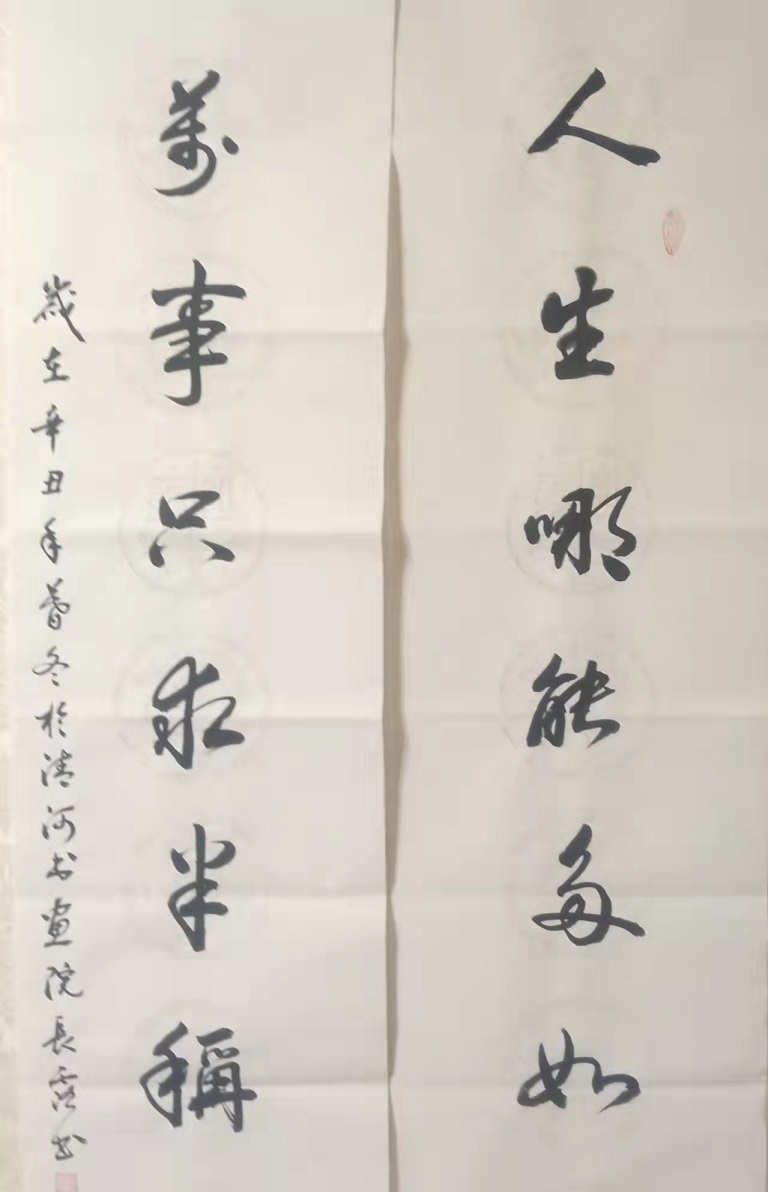 人生哪能多如
萬事只求半稱
歲在辛丑年暮冬於清河书畫院長霞书